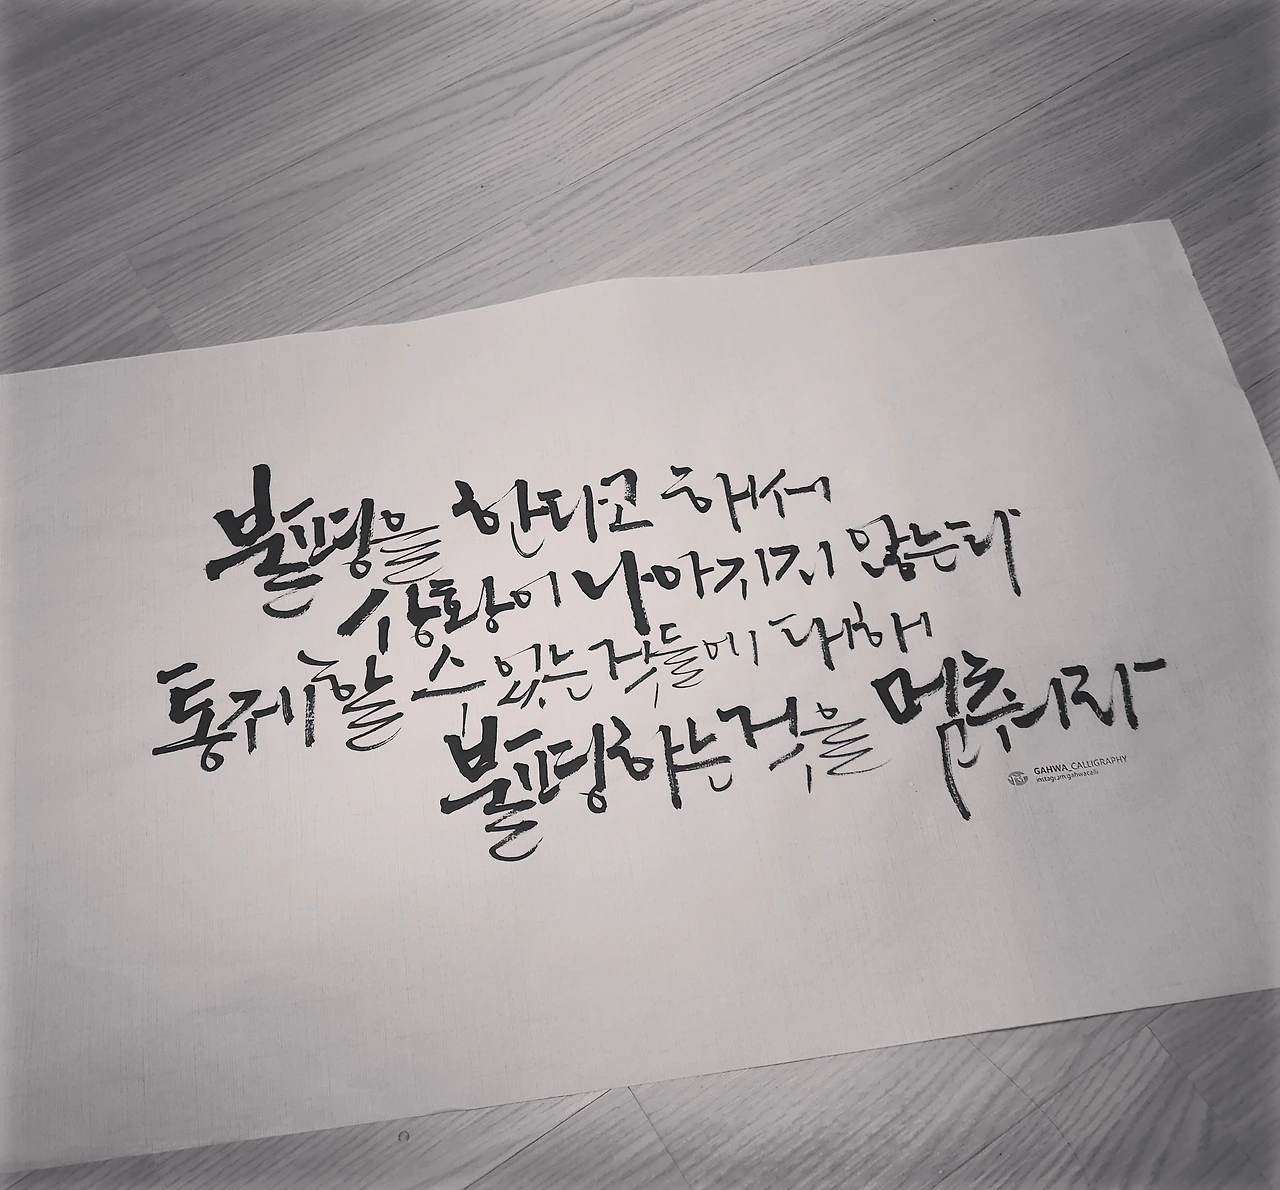 불평을 한다고 해서
상황이 나아지지 않는다
통제할 수 있는 것들에 대해
불평하는 것을 멈추니라
GAHWA_CALLIGRAPHY
instagram:gahwacalli